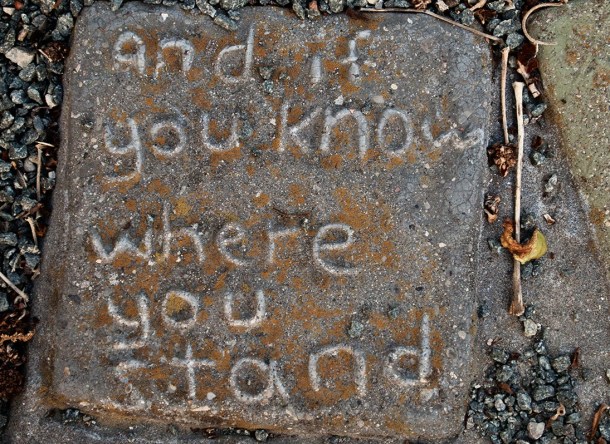 and if
you know
where
you
stand